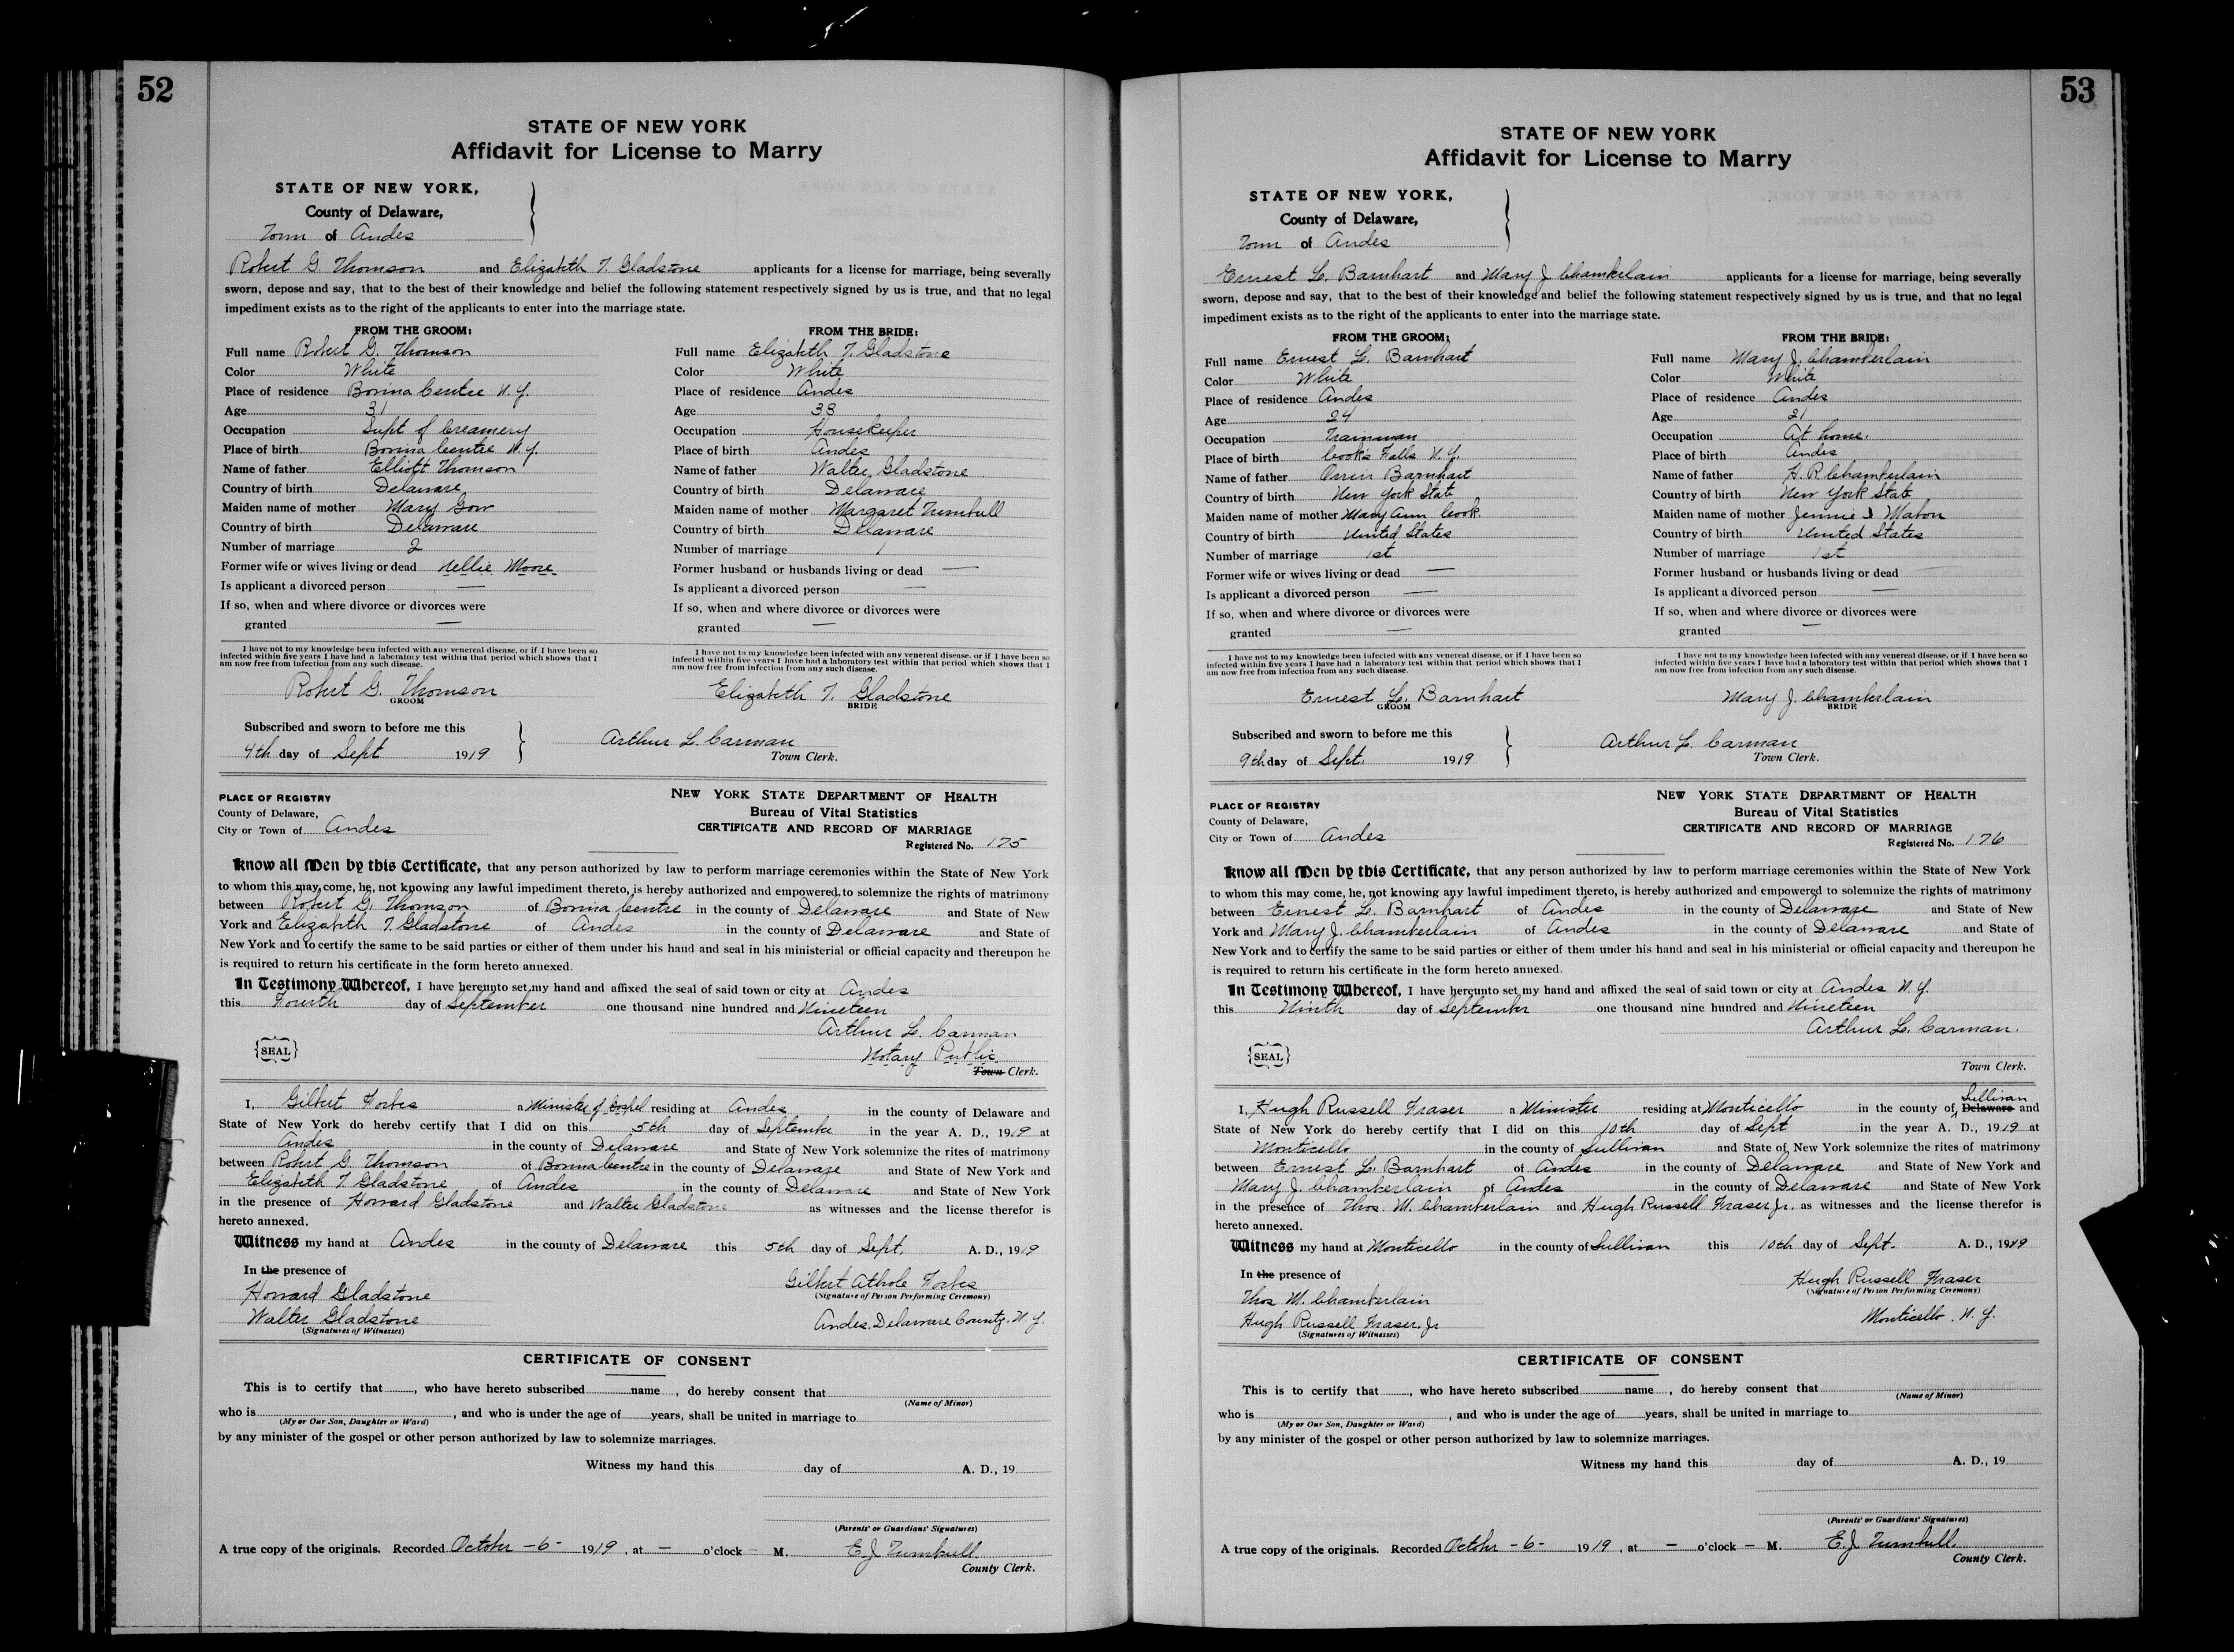 52
STATE OF NEW YORK
Affidavit for License to Marry
STATE OF NEW YORK,
County of Delaware,
Town of Andes
Robert G. Thomson and Elizabeth T. Gladstone applicants for a license for marriage, being severally
sworn, depose and say, that to the best of their knowledge and belief the following statement respectively signed by us is true, and that no legal
impediment exists as to the right of the applicants to enter into the marriage state.
FROM THE GROOM:
Full name Robert G. Thomson
Color White
Place of residence Bovina Centre N.Y.
Age 31
Occupation Supt of Creamery
Place of birth Bovina Centre N.Y.
Name of father Elliott Thomson
Country of birth Delaware
Maiden name of mother Mary Gow
Country of birth Delaware
Number of marriage 2
Former wife or wives living or dead Nellie Moore
Is applicant a divorced person —
If so, when and where divorce or divorces were
granted —
FROM THE BRIDE:
Full name Elizabeth T. Gladstone
Color White
Place of residence Andes
Age 38
Occupation Housekeeper
Place of birth Andes
Name of father Walter Gladstone
Country of birth Delaware
Maiden name of mother Margaret Turnbull
Country of birth Delaware
Number of marriage 1
Former husband or husbands living or dead —
Is applicant a divorced person —
If so, when and where divorce or divorces were
granted —
I have not to my knowledge been infected with any venereal disease, or if I have been so
infected within five years I have had a laboratory test within that period which shows that I
am now free from infection from any such disease.
Robert G. Thomson
GROOM
I have not to my knowledge been infected with any venereal disease, or if I have been so
infected within five years I have had a laboratory test within that period which shows that I
am now free from infection from any such disease.
Elizabeth T. Gladstone
BRIDE
Subscribed and sworn to before me this
4th day of Sept 1919
Arthur L. Carman
Town Clerk.
PLACE OF REGISTRY
County of Delaware,
City or Town of Andes
NEW YORK STATE DEPARTMENT OF HEALTH
Bureau of Vital Statistics
CERTIFICATE AND RECORD OF MARRIAGE
Registered No. 175
Know all Men by this Certificate, that any person authorized by law to perform marriage ceremonies within the State of New York
to whom this may come, he, not knowing any lawful impediment thereto, is hereby authorized and empowered to solemnize the rights of matrimony
between Robert G. Thomson of Bovina Centre in the county of Delaware and State of New
York and Elizabeth T. Gladstone of Andes in the county of Delaware and State of
New York and to certify the same to be said parties or either of them under his hand and seal in his ministerial or official capacity and thereupon he
is required to return his certificate in the form hereto annexed.
In Testimony Whereof, I have hereunto set my hand and affixed the seal of said town or city at Andes
this Fourth day of September one thousand nine hundred and Nineteen
Arthur L. Carman
Notary Public
SEAL
Town Clerk.
I, Gilbert Forbes a Minister of Gospel residing at Andes in the county of Delaware and
State of New York do hereby certify that I did on this 5th day of September in the year A. D., 1919 at
Andes in the county of Delaware and State of New York solemnize the rites of matrimony
between Robert G. Thomson of Bovina Centre in the county of Delaware and State of New York and
Elizabeth T Gladstone of Andes in the county of Delaware and State of New York
in the presence of Howard Gladstone and Walter Gladstone as witnesses and the license therefor is
hereto annexed.
Witness my hand at Andes in the county of Delaware this 5th day of Sept. A. D., 1919
In the presence of
Howard Gladstone
Walter Gladstone
(Signatures of Witnesses)
Gilbert Athole Forbes
(Signature of Person Performing Ceremony)
Andes, Delaware County, N.Y.
CERTIFICATE OF CONSENT
This is to certify that , who have hereto subscribed name , do hereby consent that
(Name of Minor)
who is , and who is under the age of years, shall be united in marriage to
(My or Our Son, Daughter or Ward)
by any minister of the gospel or other person authorized by law to solemnize marriages.
Witness my hand this day of A. D., 19
(Parents' or Guardians' Signatures)
A true copy of the originals. Recorded October -6- 1919, at — o'clock — M. E.J. Turnbull.
County Clerk.
53
STATE OF NEW YORK
Affidavit for License to Marry
STATE OF NEW YORK,
County of Delaware,
Town of Andes
Ernest L. Barnhart and Mary J Chamberlain applicants for a license for marriage, being severally
sworn, depose and say, that to the best of their knowledge and belief the following statement respectively signed by us is true, and that no legal
impediment exists as to the right of the applicants to enter into the marriage state.
FROM THE GROOM:
Full name Ernest L. Barnhart
Color White
Place of residence Andes
Age 24
Occupation Trainman
Place of birth Cooks Falls N.Y.
Name of father Orrin Barnhart
Country of birth New York State
Maiden name of mother Mary Ann Cook.
Country of birth United States
Number of marriage 1st
Former wife or wives living or dead —
Is applicant a divorced person —
If so, when and where divorce or divorces were
granted —
FROM THE BRIDE:
Full name Mary J. Chamberlain
Color White
Place of residence Andes
Age 21
Occupation At home.
Place of birth Andes
Name of father H. R. Chamberlain
Country of birth New York State
Maiden name of mother Jennie I Mabon
Country of birth United States
Number of marriage 1st
Former husband or husbands living or dead —
Is applicant a divorced person —
If so, when and where divorce or divorces were
granted —
I have not to my knowledge been infected with any venereal disease, or if I have been so
infected within five years I have had a laboratory test within that period which shows that I
am now free from infection from any such disease.
Ernest L. Barnhart
GROOM
I have not to my knowledge been infected with any venereal disease, or if I have been so
infected within five years I have had a laboratory test within that period which shows that I
am now free from infection from any such disease.
Mary J. Chamberlain
BRIDE
Subscribed and sworn to before me this
9th day of Sept. 1919
Arthur L. Carman
Town Clerk.
PLACE OF REGISTRY
County of Delaware,
City or Town of Andes
NEW YORK STATE DEPARTMENT OF HEALTH
Bureau of Vital Statistics
CERTIFICATE AND RECORD OF MARRIAGE
Registered No. 176
Know all Men by this Certificate, that any person authorized by law to perform marriage ceremonies within the State of New York
to whom this may come, he, not knowing any lawful impediment thereto, is hereby authorized and empowered to solemnize the rights of matrimony
between Ernest L. Barnhart of Andes in the county of Delaware and State of New
York and Mary J. Chamberlain of Andes in the county of Delaware and State of
New York and to certify the same to be said parties or either of them under his hand and seal in his ministerial or official capacity and thereupon he
is required to return his certificate in the form hereto annexed.
In Testimony Whereof, I have hereunto set my hand and affixed the seal of said town or city at Andes N.Y.
this Ninth day of September one thousand nine hundred and Nineteen
Arthur L. Carman.
SEAL
Town Clerk.
Sullivan
I, Hugh Russell Fraser a Minister residing at Monticello in the county of Delaware and
State of New York do hereby certify that I did on this 10th day of Sept in the year A. D., 1919 at
Monticello in the county of Sullivan and State of New York solemnize the rites of matrimony
between Ernest L. Barnhart of Andes in the county of Delaware and State of New York and
Mary J. Chamberlain of Andes in the county of Delaware and State of New York
in the presence of Thos. M. Chamberlain and Hugh Russell Fraser Jr. as witnesses and the license therefor is
hereto annexed.
Witness my hand at Monticello in the county of Sullivan this 10th day of Sept. A. D., 1919
In the presence of
Thos M. Chamberlain
Hugh Russell Fraser, Jr
(Signatures of Witnesses)
Hugh Russell Fraser
(Signature of Person Performing Ceremony)
Monticello, N.Y.
CERTIFICATE OF CONSENT
This is to certify that , who have hereto subscribed name , do hereby consent that
(Name of Minor)
who is , and who is under the age of years, shall be united in marriage to
(My or Our Son, Daughter or Ward)
by any minister of the gospel or other person authorized by law to solemnize marriages.
Witness my hand this day of A. D., 19
(Parents' or Guardians' Signatures)
A true copy of the originals. Recorded October -6- 1919, at — o'clock — M. E.J. Turnbull.
County Clerk.